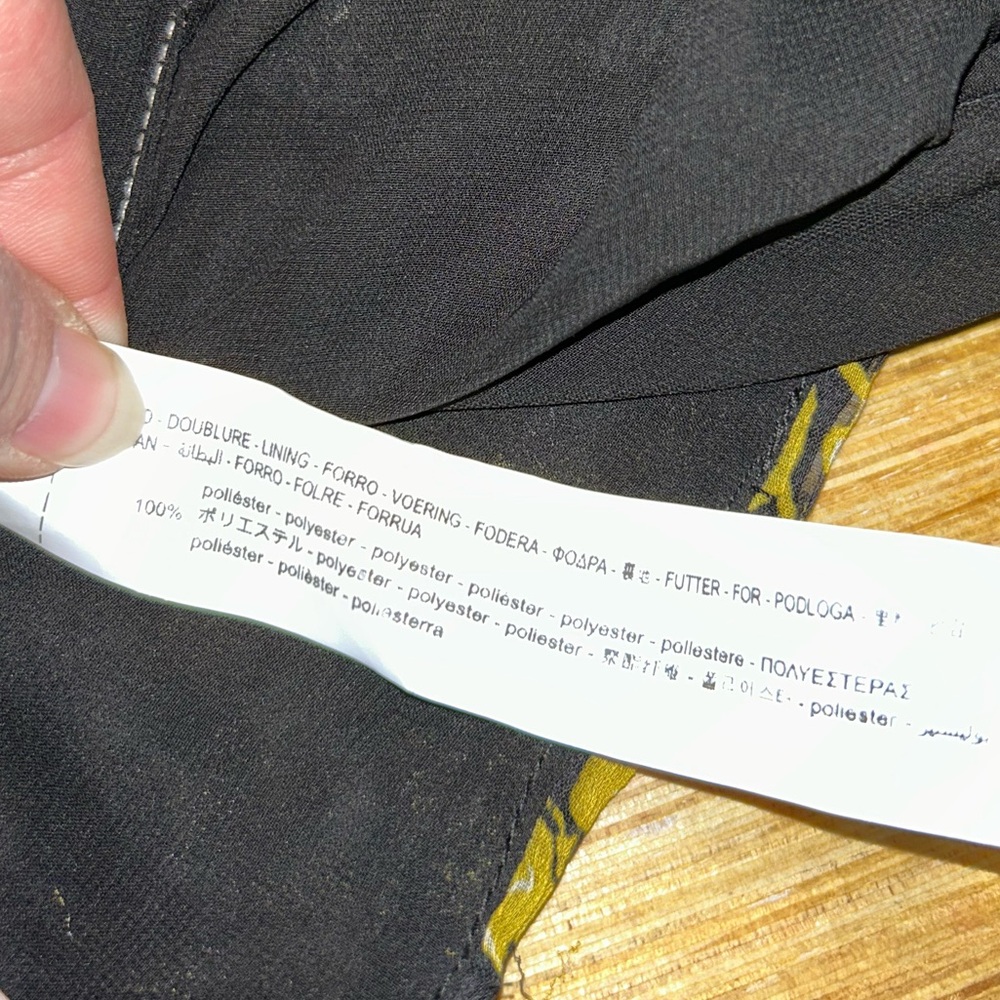 - DOUBLURE - LINING - FORRO - VOERING - FODERA - ΦΟΔΡΑ - 裏地 - FUTTER - FOR - PODLOGA -
البطانة - FORRO - FOLRE - FORRUA
100% poliéster - polyester - polyester - poliéster - polyester - poliestere - ΠΟΛΥΕΣΤΕΡΑΣ
ポリエステル - polyester - polyester - poliester - 聚酯纤维 - 폴리에스터 - poliester -
poliéster - polièster - poliesterra